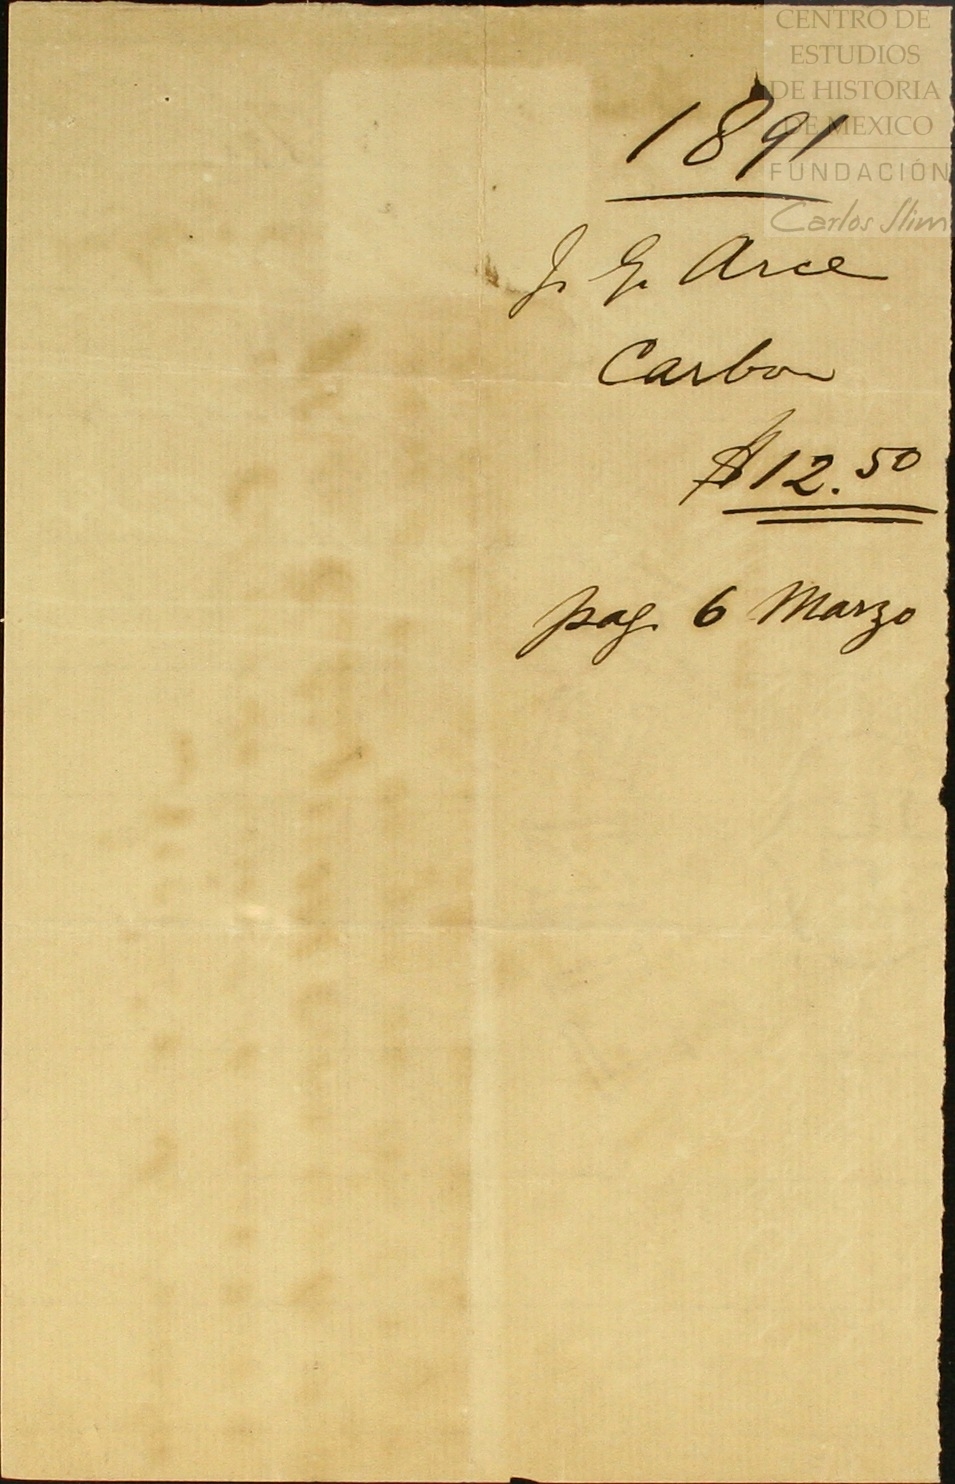 CENTRO DE
ESTUDIOS
DE HISTORIA
DE MEXICO
FUNDACIÓN
Carlos Slim
1891
J. G. Arce
Carbon
$12.50
pag. 6 Marzo